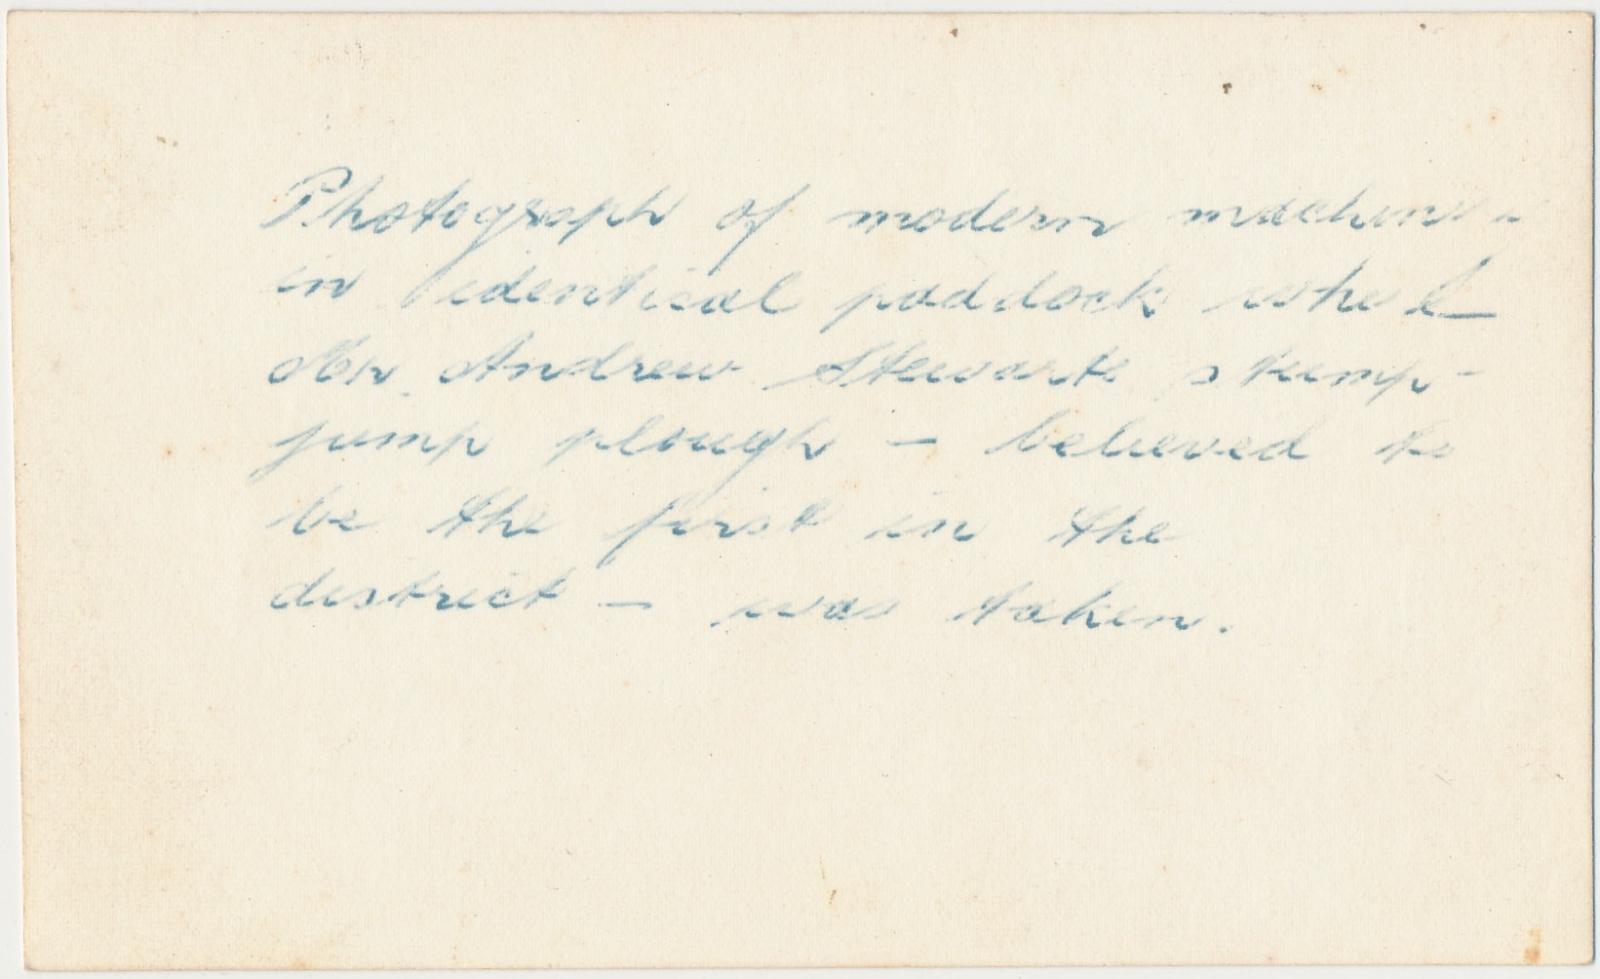 Photograph of modern
in identical paddock
Mr. Andrew Stewarts stump-
jump plough – believed to
be the first in the
district – was taken.